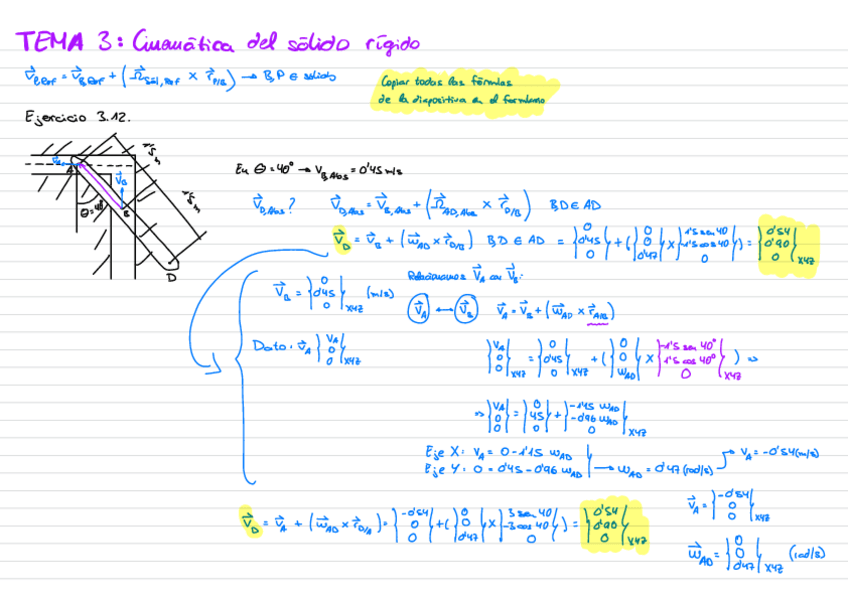 TEMA 3: Cinemática del sólido rígido
V⃗P,Ref = V⃗B,Ref + (Ω⃗Sól,Ref × r⃗P/B) → B,P ∈ sólido
Copiar todas las fórmulas
de la diapositiva en el formulario
Ejercicio 3.12.
1'5 m
1'5 m
A
V⃗B
θ=40°
B
D
En θ=40° → VB,Abs = 0'45 m/s
V⃗D,Abs? V⃗D,Abs = V⃗B,Abs + (Ω⃗AD,Abs × r⃗D/B) B,D ∈ AD
V⃗D = V⃗B + (ω⃗AD × r⃗D/B) B,D ∈ AD = {0 0'45 0} + ({0 0 0'47} × {1'5 sen 40 -1'5 cos 40 0}) = {0'54 0'90 0}XYZ
V⃗B = {0 0'45 0}XYZ (m/s)
Relacionamos V⃗A con V⃗B:
V⃗A ↔ V⃗B V⃗A = V⃗B + (ω⃗AD × r⃗A/B)
Dato: V⃗A {VA 0 0}XYZ
{VA 0 0}XYZ = {0 0'45 0}XYZ + ({0 0 ωAD} × {-1'5 sen 40° 1'5 cos 40° 0}XYZ) ⇒
⇒ {VA 0 0} = {0 45 0} + {-1'15 ωAD -0'96 ωAD 0}XYZ
Eje X: VA = 0 - 1'15 ωAD
Eje Y: 0 = 0'45 - 0'96 ωAD → ωAD = 0'47 (rad/s) → VA = -0'54 (m/s)
V⃗A = {-0'54 0 0}XYZ
V⃗D = V⃗A + (ω⃗AD × r⃗D/A) = {-0'54 0 0} + ({0 0 0'47} × {3 sen 40 -3 cos 40 0}) = {0'54 0'90 0}XYZ
ω⃗AD = {0 0 0'47}XYZ (rad/s)